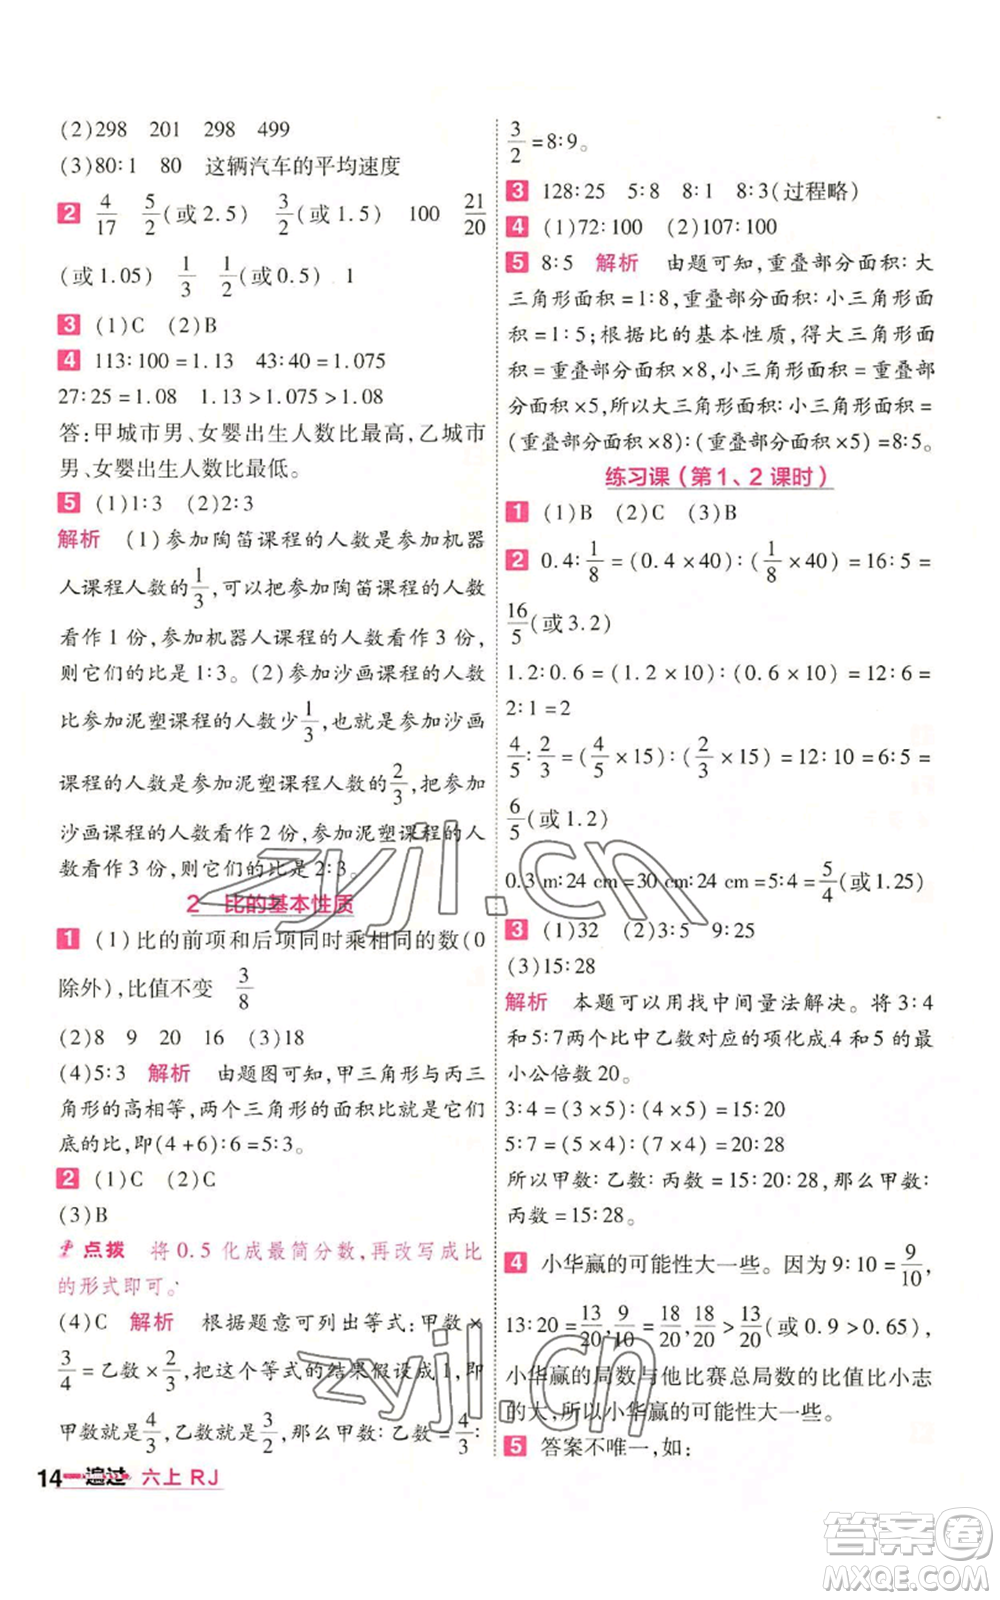 (2)298 201 298 499
(3)80∶1 80 这辆汽车的平均速度
2 4/17 5/2(或2.5) 3/2(或1.5) 100 21/20
(或1.05) 1/3 1/2(或0.5) 1
3 (1)C (2)B
4 113∶100=1.13 43∶40=1.075
27∶25=1.08 1.13>1.075>1.08
答:甲城市男、女婴出生人数比最高,乙城市
男、女婴出生人数比最低。
5 (1)1∶3 (2)2∶3
解析 (1)参加陶笛课程的人数是参加机器
人课程人数的1/3,可以把参加陶笛课程的人数
看作1份,参加机器人课程的人数看作3份,
则它们的比是1∶3。(2)参加沙画课程的人数
比参加泥塑课程的人数少1/3,也就是参加沙画
课程的人数是参加泥塑课程的人数的2/3,参加
沙画课程的人数看作2份,参加泥塑课程的人
数看作3份,则它们的比是2∶3。
2 比的基本性质
1 (1)比的前项和后项同时乘相同的数(0
除外),比值不变 3/8
(2)8 9 20 16 (3)18
(4)5∶3 解析 由题图可知,甲三角形与丙三
角形的高相等,两个三角形的面积比就是它们
底的比,即(4+6)∶6=5∶3。
2 (1)C (2)C
(3)B
点拨 将0.5化成最简分数,再改写成比
的形式即可。
(4)C 解析 根据题意可列出等式:甲数×
3/4=乙数×2/3,把这个等式的结果假设成1,即
甲数就是4/3,乙数就是3/2,所以甲数∶乙数=4/3∶
3/2=8∶9。
3 128∶25 5∶8 8∶1 8∶3(过程略)
4 (1)72∶100 (2)107∶100
5 8∶5 解析 由题可知,重叠部分面积∶大
三角形面积=1∶8,重叠部分面积∶小三角形面
积=1∶5;根据比的基本性质,得大三角形面
积=重叠部分面积×8,小三角形面积=重叠部
分面积×5,所以大三角形面积∶小三角形面积=
(重叠部分面积×8)∶(重叠部分面积×5)=8∶5。
练习课(第1、2课时)
1 (1)B (2)C (3)B
2 0.4∶1/8=(0.4×40)∶(1/8×40)=16∶5=
16/5(或3.2)
1.2∶0.6=(1.2×10)∶(0.6×10)=12∶6=
2∶1=2
4/5∶2/3=(4/5×15)∶(2/3×15)=12∶10=6∶5=
6/5(或1.2)
0.3 m∶24 cm=30 cm∶24 cm=5∶4=5/4(或1.25)
3 (1)32 (2)3∶5 9∶25
(3)15∶28
解析 本题可以用找中间量法解决。将3∶4
和5∶7两个比中乙数对应的项化成4和5的最
小公倍数20。
3∶4=(3×5)∶(4×5)=15∶20
5∶7=(5×4)∶(7×4)=20∶28
所以甲数∶乙数∶丙数=15∶20∶28,那么甲数∶
丙数=15∶28。
4 小华赢的可能性大一些。因为9∶10=9/10,
13∶20=13/20,9/10=18/20,18/20>13/20(或0.9>0.65),
小华赢的局数与他比赛总局数的比值比小志
的大,所以小华赢的可能性大一些。
5 答案不唯一,如:
14 一遍过 六上 RJ
zyjl.cn
zyjl.cn
答案圈
MXQE.COM